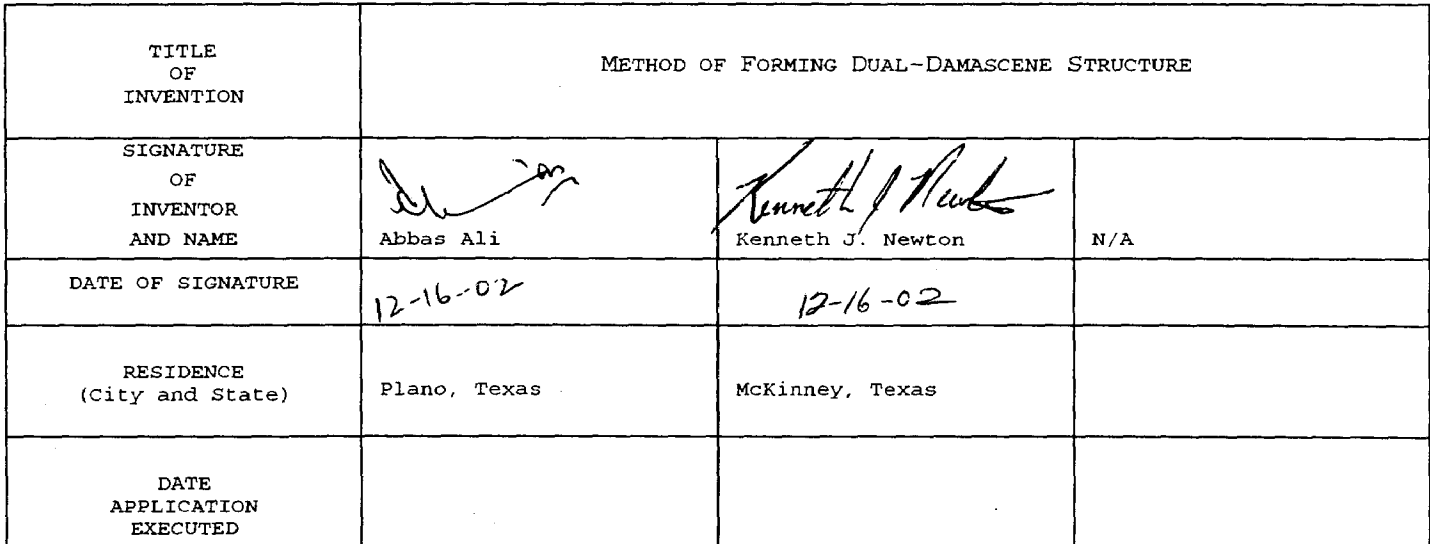 TITLE
OF
INVENTION
METHOD OF FORMING DUAL-DAMASCENE STRUCTURE
SIGNATURE
OF
INVENTOR
AND NAME
Kenneth J Newton
Abbas Ali
Kenneth J. Newton
N/A
DATE OF SIGNATURE
12-16-02
12-16-02
RESIDENCE
(City and State)
Plano, Texas
McKinney, Texas
DATE
APPLICATION
EXECUTED